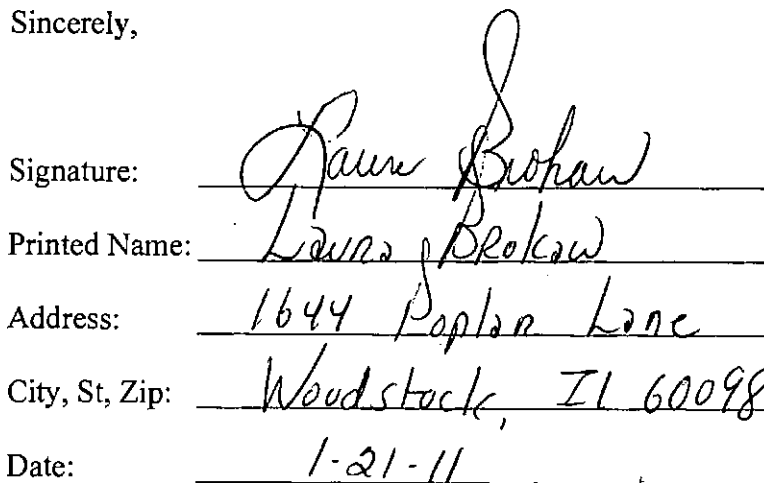 Sincerely,
Signature: Laura Brokaw
Printed Name: Laura Brokaw
Address: 1644 Poplar Lane
City, St, Zip: Woodstock, IL 60098
Date: 1-21-11